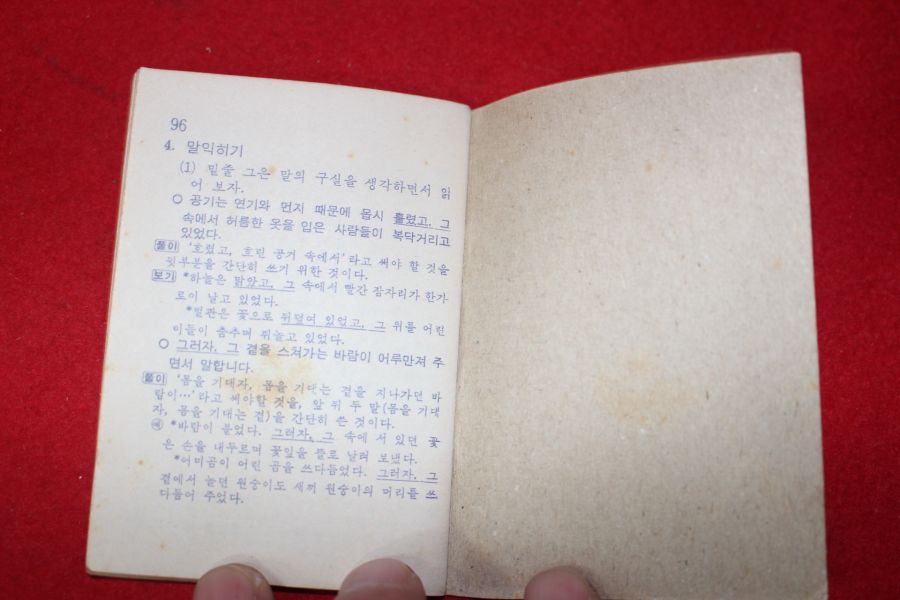 96
4. 말익히기
(1) 밑줄 그은 말의 구실을 생각하면서 읽
어 보자.
○ 공기는 연기와 먼지 때문에 몹시 흘렸고, 그
속에서 허름한 옷을 입은 사람들이 복닥거리고
있었다.
풀이 '흐렸고, 흐린 공기 속에서'라고 써야 할 것을
뒷부분을 간단히 쓰기 위한 것이다.
보기 *하늘은 맑았고, 그 속에서 빨간 잠자리가 한가
로이 날고 있었다.
*벌판은 꽃으로 뒤덮여 있었고, 그 위를 어린
이들이 춤추며 뛰놀고 있었다.
○ 그러자, 그 곁을 스쳐가는 바람이 어루만져 주
면서 말합니다.
풀이 '몸을 기대자, 몸을 기대는 곁을 지나가던 바
람이…'라고 써야할 것을, 앞 뒤 두 말(몸을 기대
자, 몸을 기대는 곁)을 간단히 쓴 것이다.
예 *바람이 불었다. 그러자, 그 속에 서 있던 꽃
은 손을 내두르며 꽃잎을 들로 날려 보냈다.
*어미곰이 어린 곰을 쓰다듬었다. 그러자, 그
곁에서 놀던 원숭이도 새끼 원숭이의 머리를 쓰
다듬어 주었다.